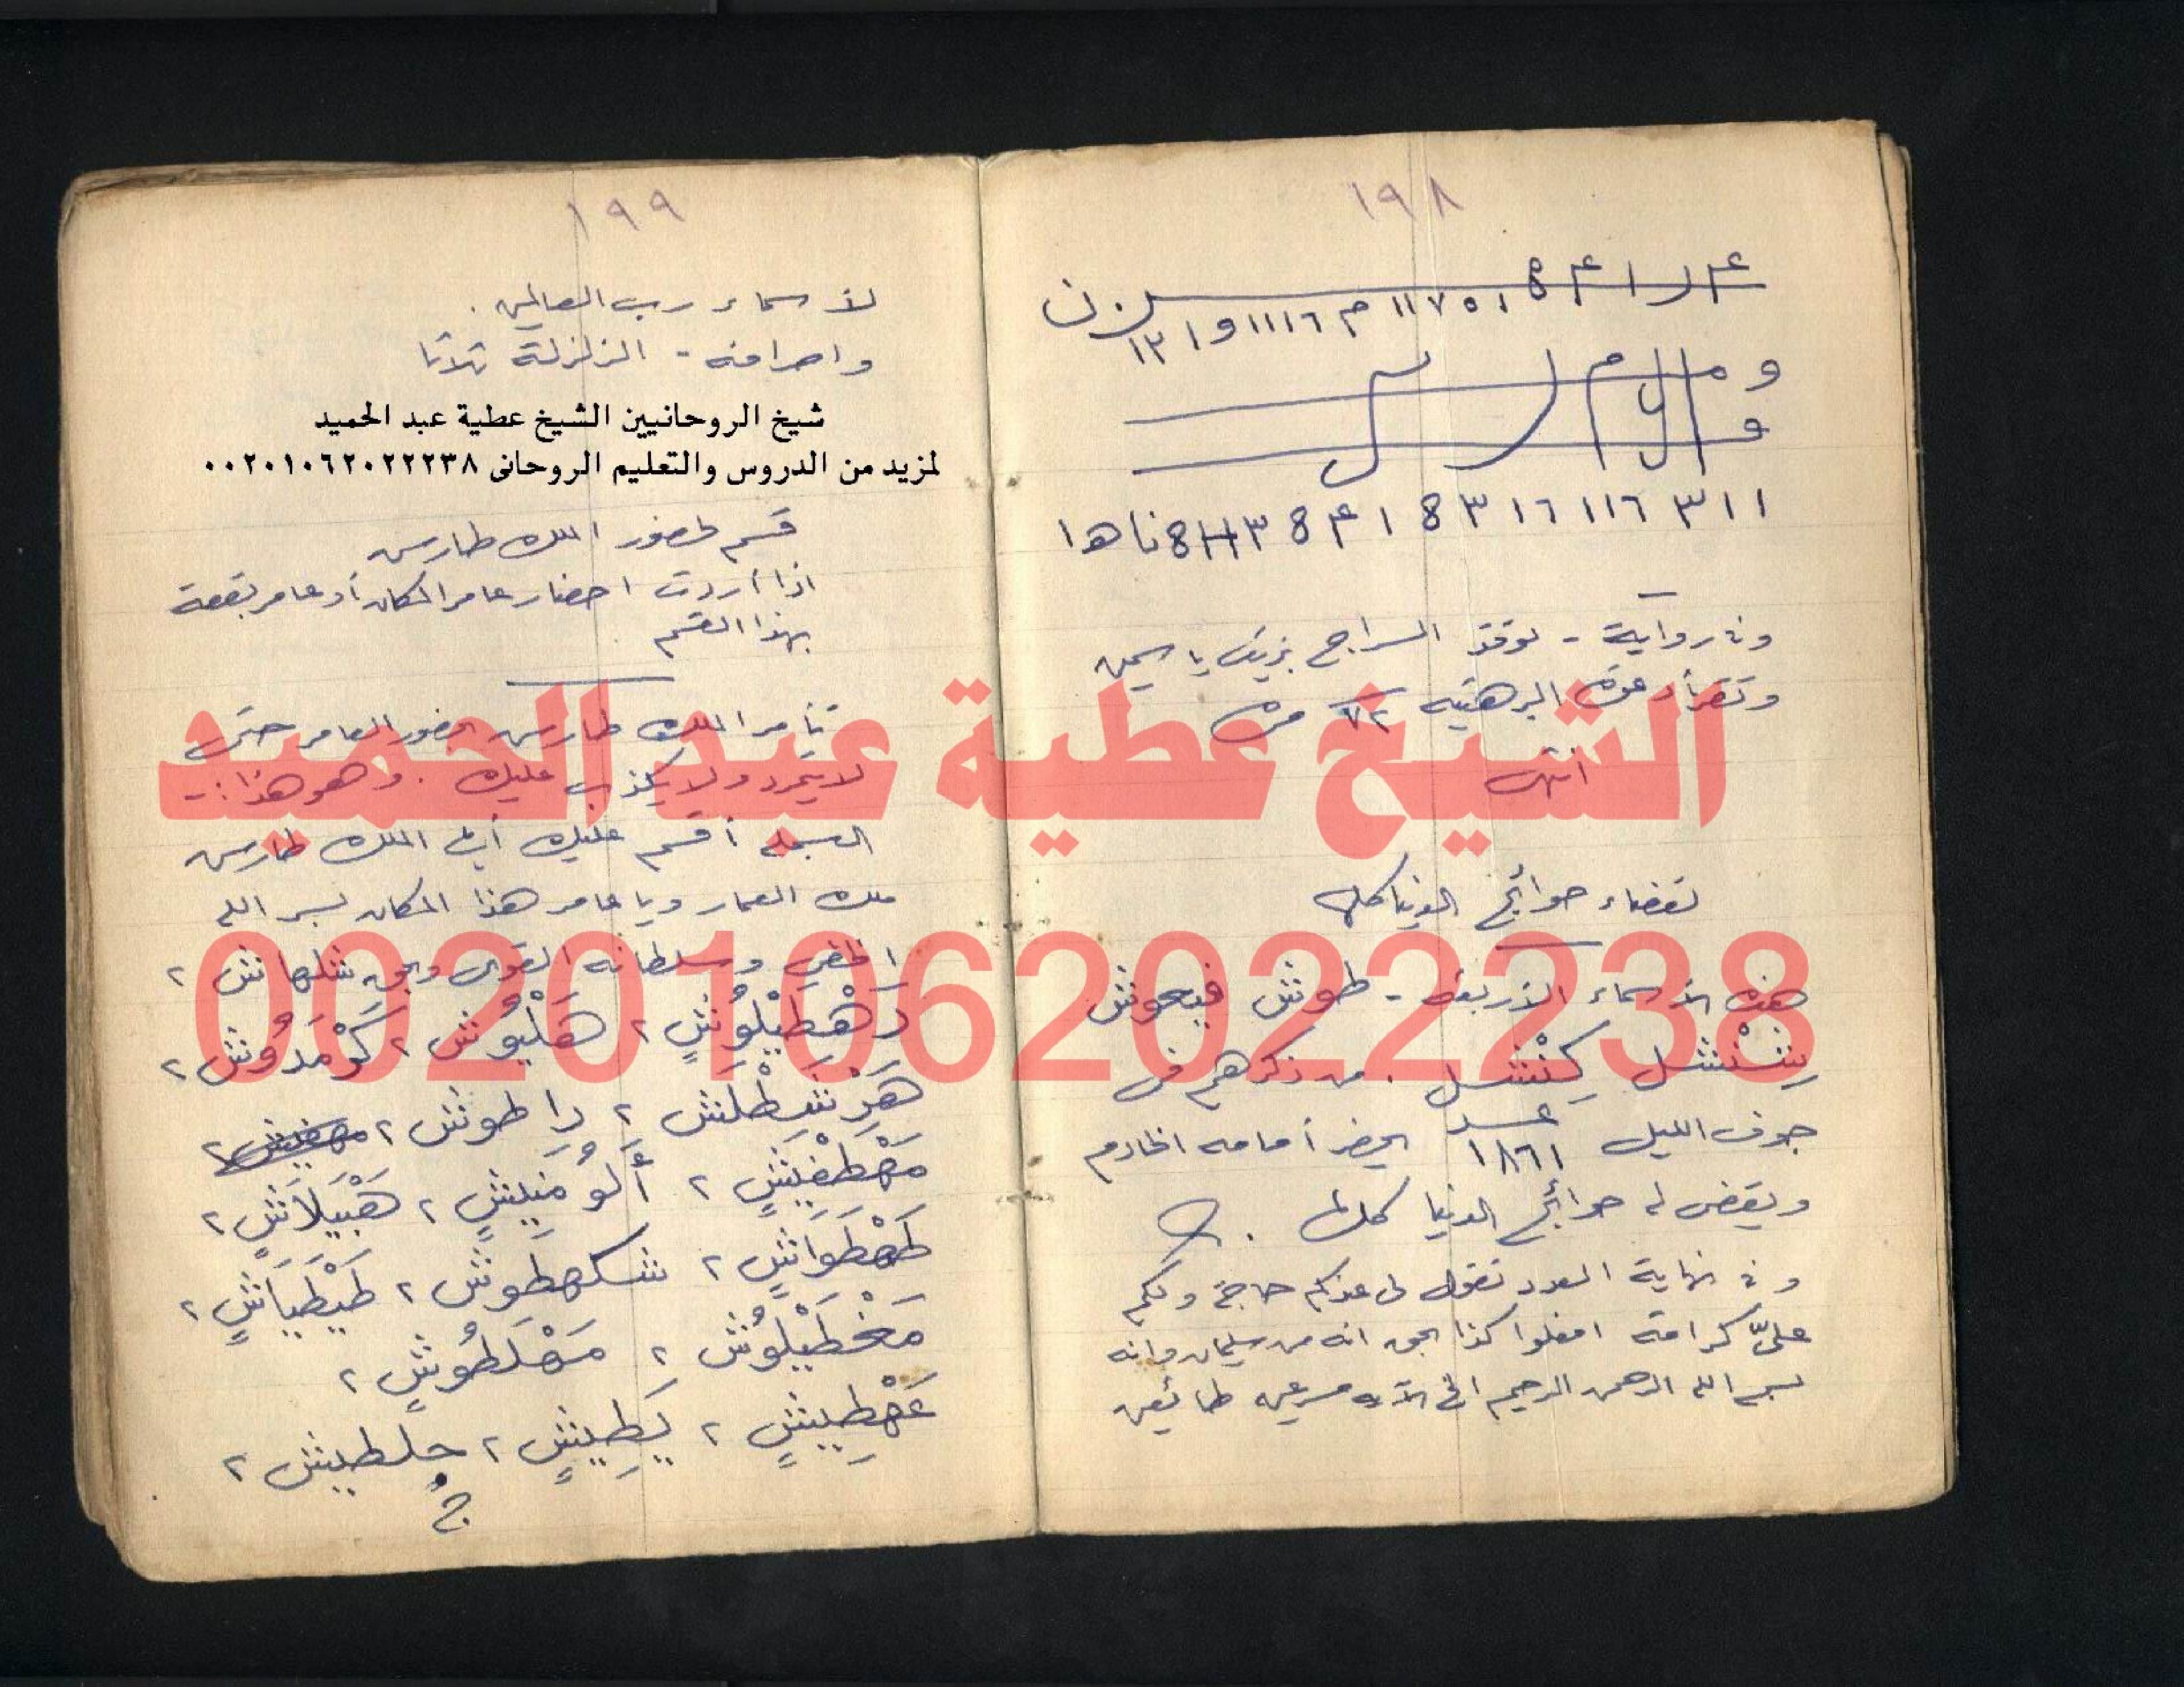 ١٩٨
١١ ٣ ١١٦ ١٦ ٣ 8 ١ ٤ 8 ٣ H 8 ناها
وفى رواية - توقد السراج بزيت ياسمين
وتقرأ دعوة البرهتيه ٧٢ مرة
انتهى
لقضاء حوائج الدنيا كلها
هذه الأسماء الأربعة - طوش فيحوش
كِنْشل . من ذكرهم فى
جوف الليل عدد ١٨٦١ يحضر أمامه الخادم
ويقضى له حوائج الدنيا كلها .
وفى نهاية العدد تقول لى عندكم حاجة ولكم
علىّ كرامة افعلوا كذا بحق انه من سليمان وانه
بسم الله الرحمن الرحيم الى الآيه مسرعين طائعين
١٩٩
لأسماء رب العالمين .
واصرافه - الزلزلة ثلاثا
شيخ الروحانيين الشيخ عطية عبد الحميد
لمزيد من الدروس والتعليم الروحانى ٠٠٢٠١٠٦٢٠٢٢٢٣٨
قسم لحضور الملك طارس
اذا أردت احضار عامر المكان أو عامر بقعة
بهذا القسم
تأمر الملك طارس بحضور العامر حتى
لا يتمرد ولا يكذب عليك . وهو هذا :-
البسمله أقسم عليك أيها الملك طارس
ملك العمار ويا عامر هذا المكان بسر الله
الخفي وسلطانه القوى وبحق شلهاش ٢
دَهْطَيْلُوشٍ ٢ هَلْيُوش ٢ كَوْمَدُوش ٢
هَرْشَطْلَش ٢ راطوش ٢
مَهْطَفِيَشٍ ٢ أَلُومَنِيشٍ ٢ هَبْيَلَاشٍ ٢
طَهْطَوَاشٍ ٢ شكهطوش ٢ طَيْطَيَاشٍ ٢
مَخْطَيْلُوش ٢ مَهْلَطُوشٍ ٢
عَهْطِيشٍ ٢ يَطِيشٍ ٢ جلطيش ٢
جُ
الشيخ عطية عبد الحميد
00201062022238